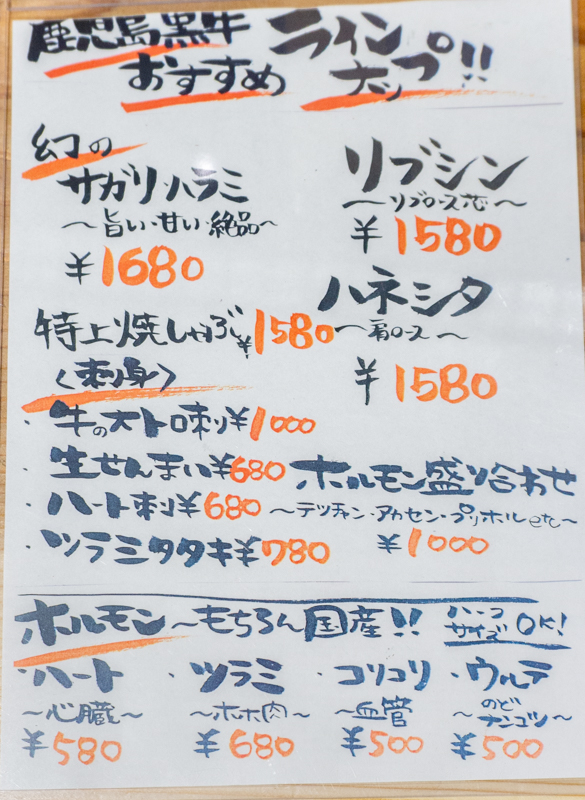 鹿児島黒牛
おすすめ
ラインナップ!!
幻の
サガリ・ハラミ
～旨い・甘い・絶品～
¥1680
リブシン
～リブロース芯～
¥1580
特上焼しゃぶ ¥1580
ハネシタ
～肩ロース～
¥1580
〈刺身〉
・牛の大トロ刺し ¥1000
・生せんまい ¥680
・ハート刺 ¥680
・ツラミタタキ ¥780
ホルモン盛り合わせ
～テッチャン・アカセン・プリホルetc～
¥1000
ホルモン～もちろん国産!! ハーフサイズOK!
・ハート
～心臓～
¥580
・ツラミ
～ホホ肉～
¥680
・コリコリ
～血管～
¥500
・ウルテ
～のどナンコツ～
¥500